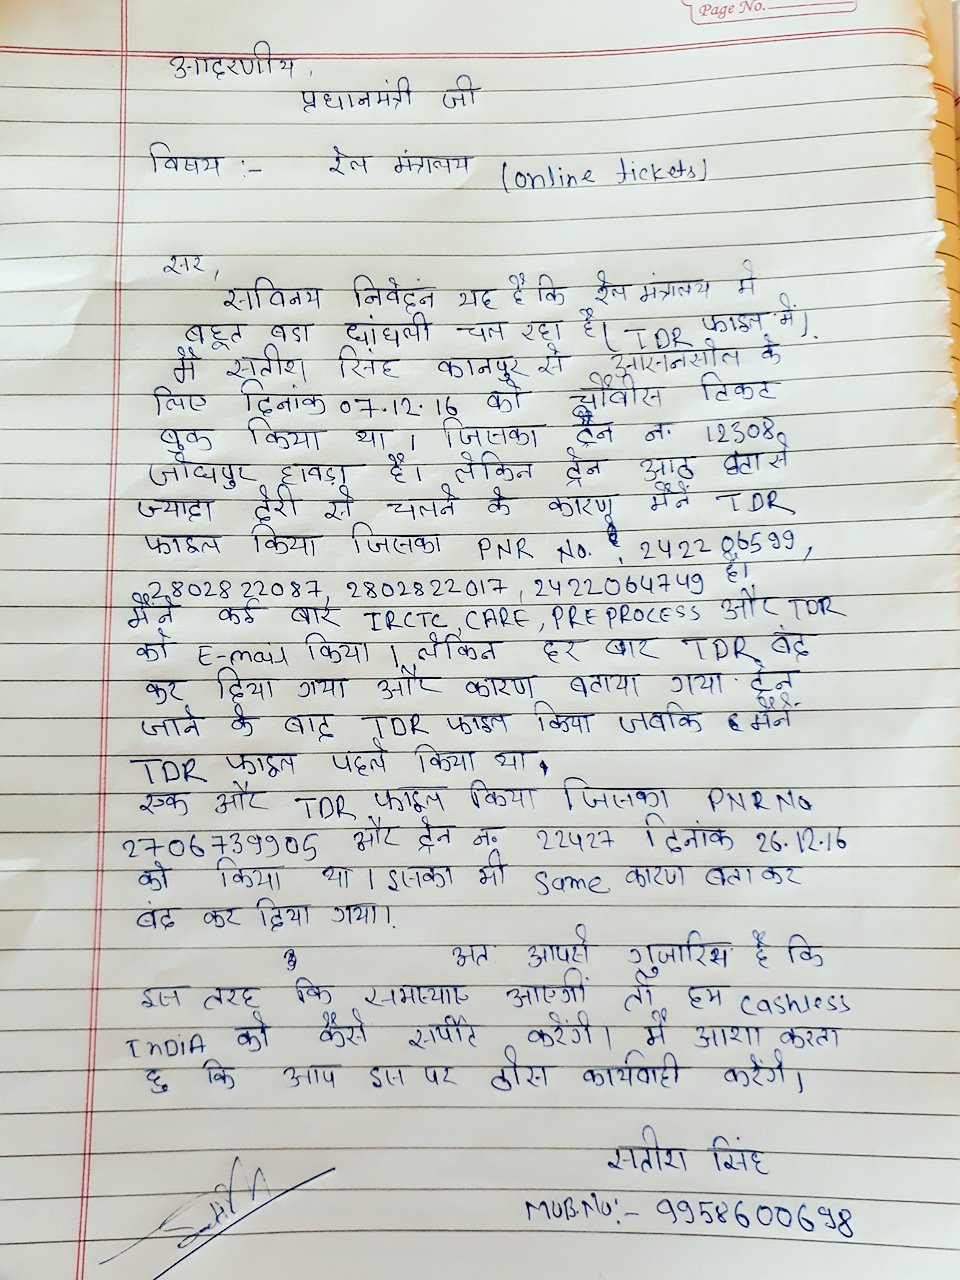 Page No.
आदरणीय,
प्रधानमंत्री जी
विषय :- रेल मंत्रालय (online tickets)
सर,
सविनय निवेदन यह है कि रेल मंत्रालय में
बहुत बडा धांधली चल रहा है। (TDR फाइल में)
मै सतीश सिंह कानपुर से आसनसोल के
लिए दिनांक 07.12.16 को चौबीस टिकट
बुक किया था। जिसका ट्रेन न. 12308
जोधपुर हावड़ा है। लेकिन ट्रेन आठ घंटा से
ज्यादा देरी से चलने के कारण मैंने TDR
फाइल किया जिसका PNR No. 2422206599,
2802822087, 2802822017, 2422064749 है।
मैंने कई बार IRCTC, CARE, PREPROCESS और TDR
को E-mail किया। लेकिन हर बार TDR बंद
कर दिया गया और कारण बताया गया ट्रेन
जाने के बाद TDR फाइल किया जबकि मैंने
TDR फाइल पहले किया था।
एक और TDR फाइल किया जिसका PNR No
2706739905 और ट्रेन न. 22427 दिनांक 26.12.16
को किया था। इसका भी same कारण बता कर
बंद कर दिया गया।
अतः आपसे गुजारिश है कि
इस तरह कि समस्याए आएगीं तो हम cashless
INDIA को कैसे सर्पोट करेंगे। मै आशा करता
हु कि आप इस पर ठोस कार्यवाही करेंगे।
सतीश सिंह
MOB.No:- 9958600698